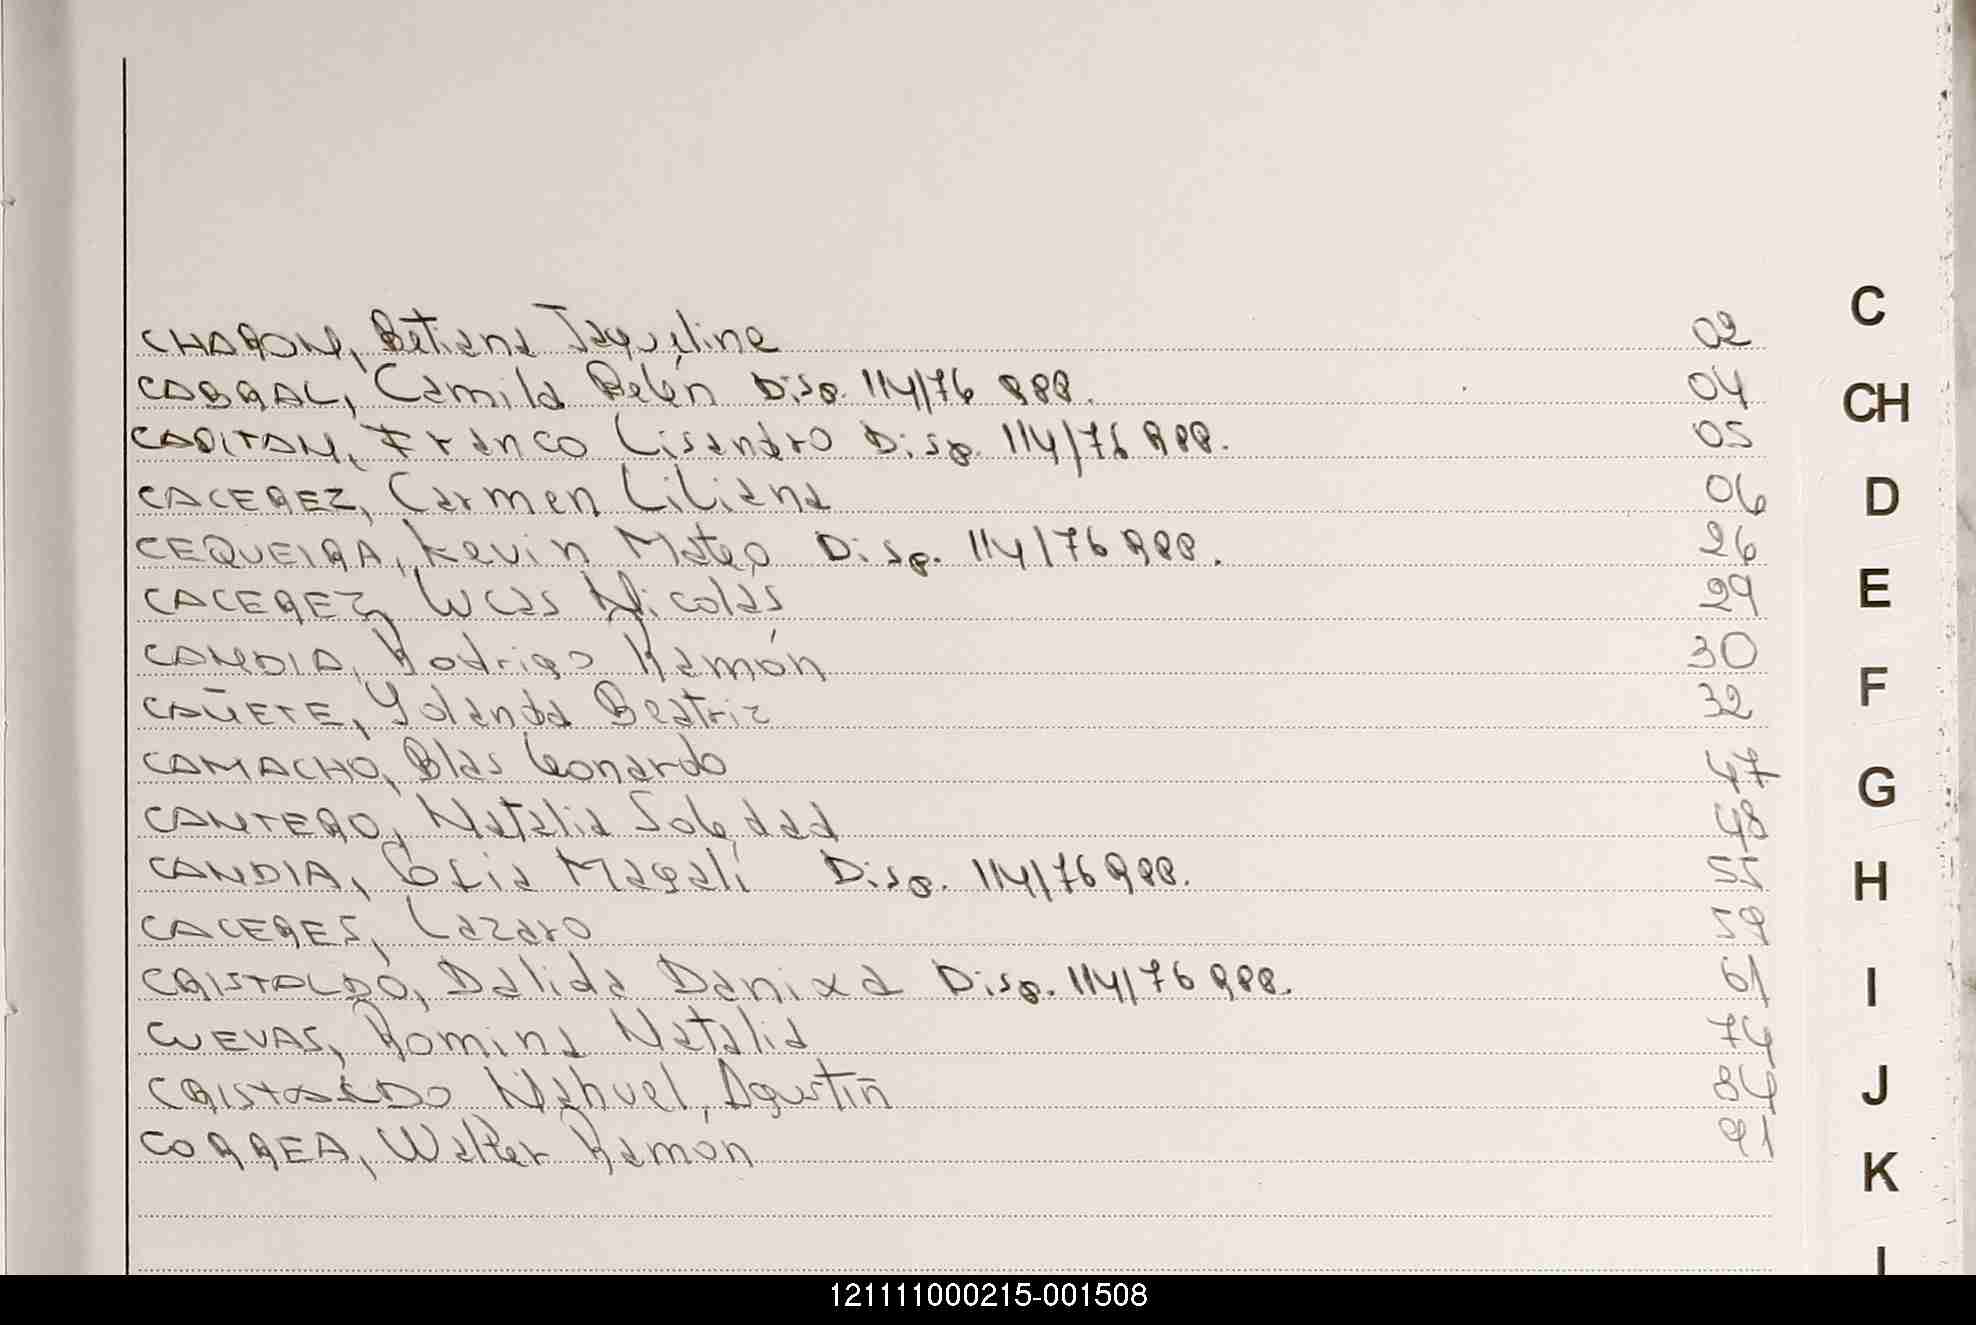 CHARON, Betiana Jaqueline 02
CABRAL, Camila Belén Disp. 114/76 RPP. 04
CAPITAN, Franco Lisandro Disp. 114/76 RPP. 05
CACEREZ, Carmen Liliana 06
CEQUEIRA, Kevin Mateo Disp. 114/76 RPP. 26
CACEREZ, Lucas Nicolás 29
CANDIA, Rodrigo Ramón 30
CAÑETE, Yolanda Beatriz 32
CAMACHO, Blas Leonardo 47
CANTERO, Natalia Soledad 48
CANDIA, Magalí Disp. 114/76 RPP. 55
CACERES, Lazaro 59
CRISTALDO, Dalida Danixa Disp. 114/76 RPP. 61
CUEVAS, Romina Natalia 74
CRISTALDO Nahuel, Agustin 84
CORREA, Walter Ramón 91
C
CH
D
E
F
G
H
I
J
K
121111000215-001508